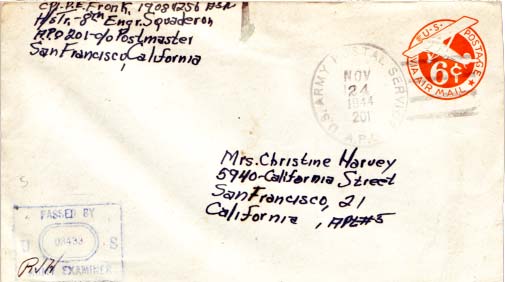 Cpl. P.E. Fronk, 19084256 ASN
H&Str.-8th Engr. Squaderon
APO 201-c/o Postmaster
San Francisco, California
U.S. POSTAGE
6¢
VIA AIR MAIL
U.S. ARMY POSTAL SERVICE
NOV
24
1944
201
A.P.O.
Mrs. Christine Harvey
5940-California Street
San Francisco, 21
California, APt#5
PASSED BY
U S
EXAMINER
RJH